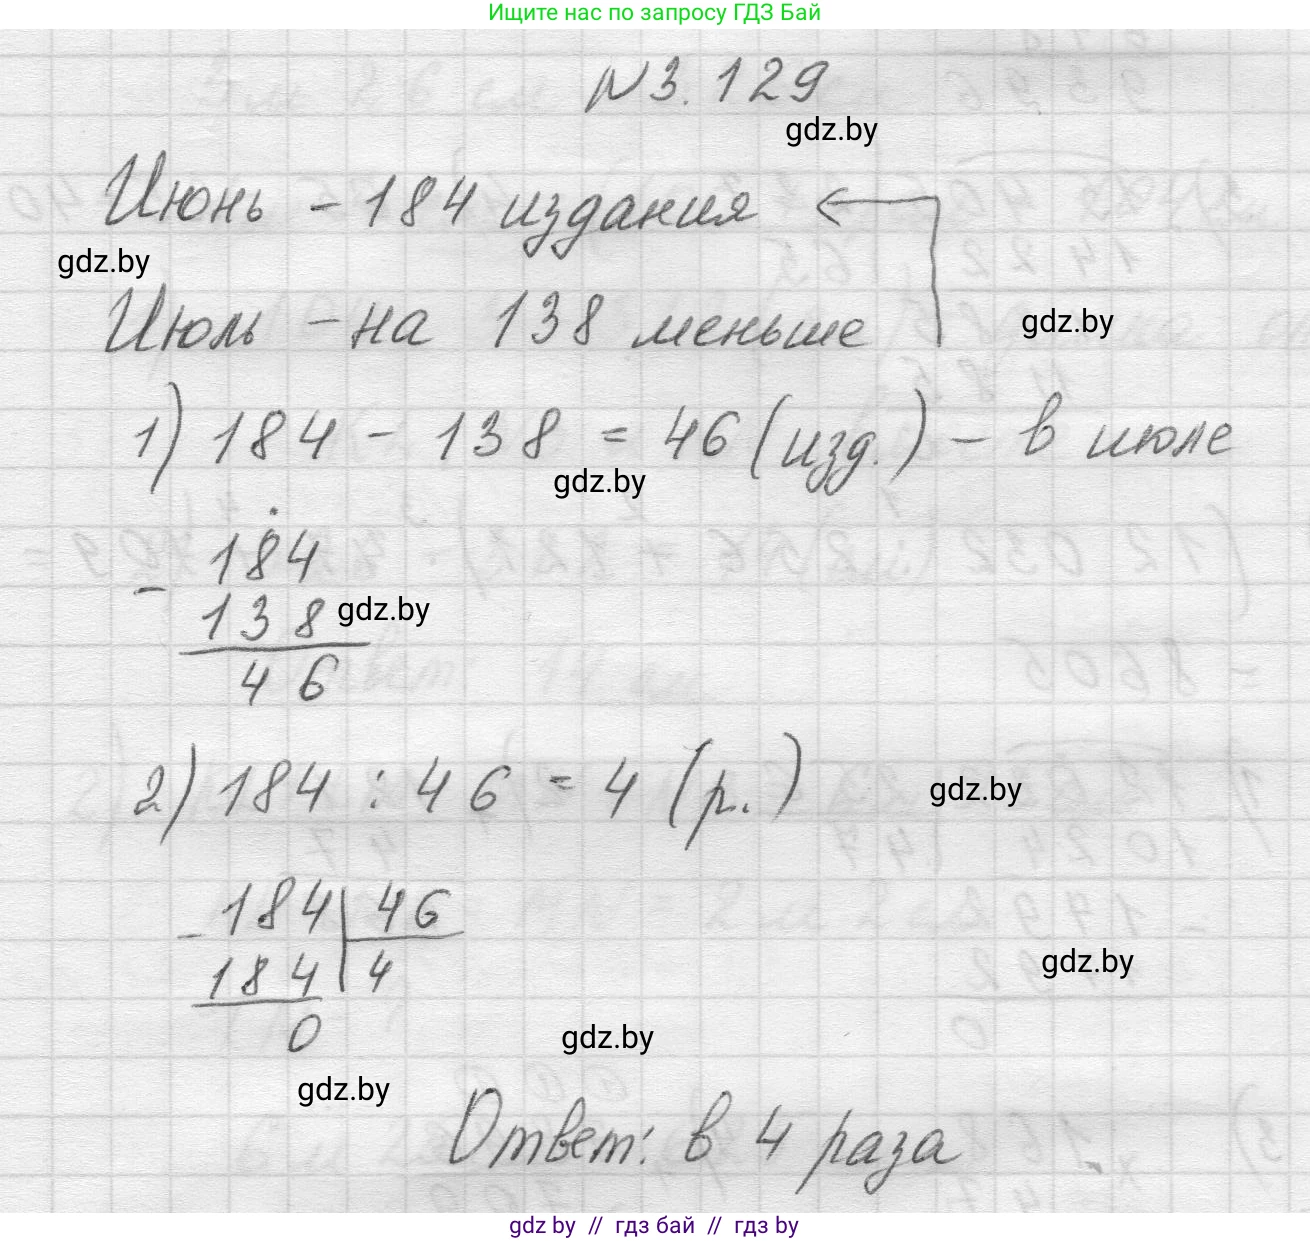 Ищите нас по запросу ГДЗ Бай
N3.129
gdz.by
Июнь - 184 издания
gdz.by
Июль - на 138 меньше
gdz.by
1) 184 - 138 = 46 (изд.) - в июле
gdz.by
- 184
138 gdz.by
46
2) 184 : 46 = 4 (р.)
gdz.by
- 184 46
184 4
gdz.by
0
gdz.by
gdz.by
Ответ: в 4 раза
gdz by // гдз бай // гдз by